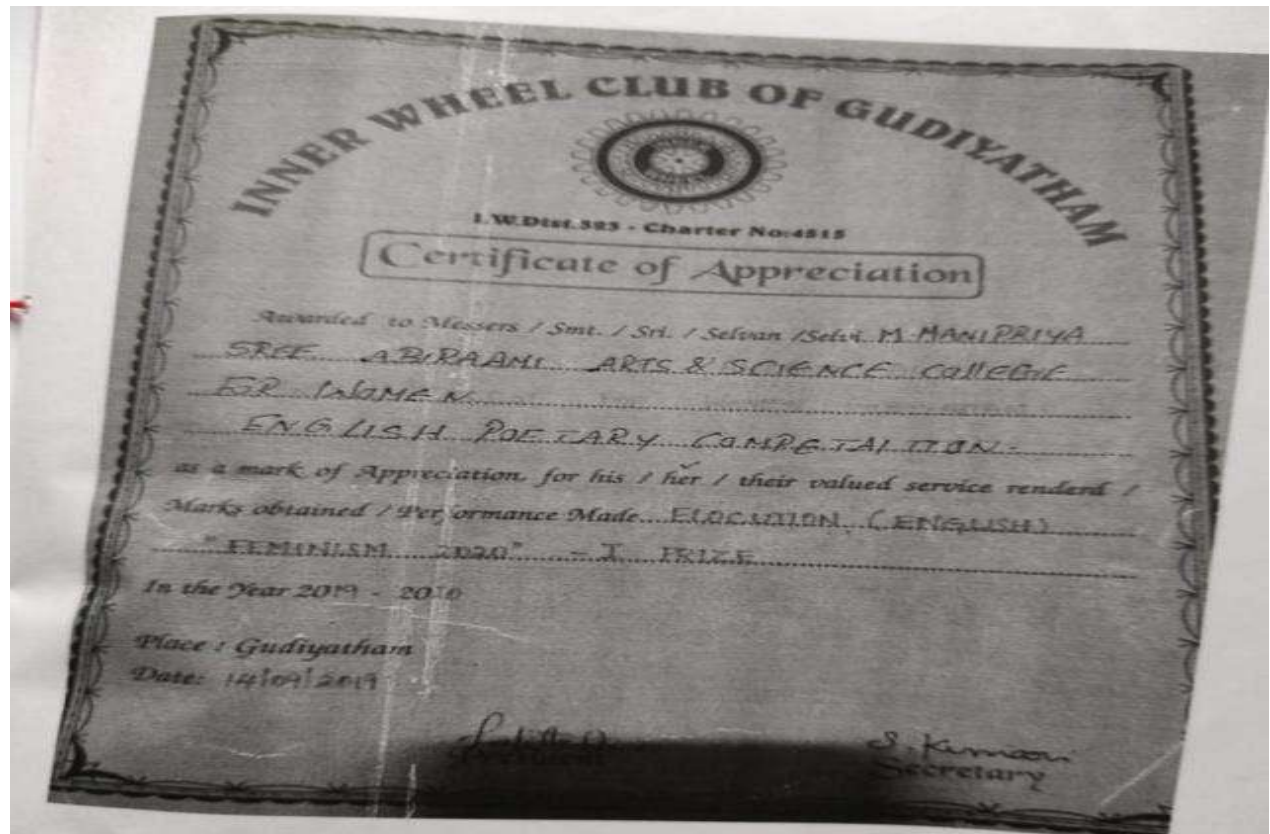 INNER WHEEL CLUB OF GUDIYATHAM
I.W.Dist.323 - Charter No:4515
Certificate of Appreciation
Awarded to Messers / Smt. / Sri. / Selvan /Selvi M. MANIPRIYA
SREE ABIRAAMI ARTS & SCIENCE COllEGE
FOR WOMEN
ENGLISH POETARY COMPETAITION-
as a mark of Appreciation, for his / her / their valued service renderd /
Marks obtained / Performance Made ELOCUTION (ENGLISH)
"FEMINISM 2020" - I PRIZE
In the Year 2019 - 2020
Place : Gudiyatham
Date: 14/09/2019
President
S. Kumari
Secretary